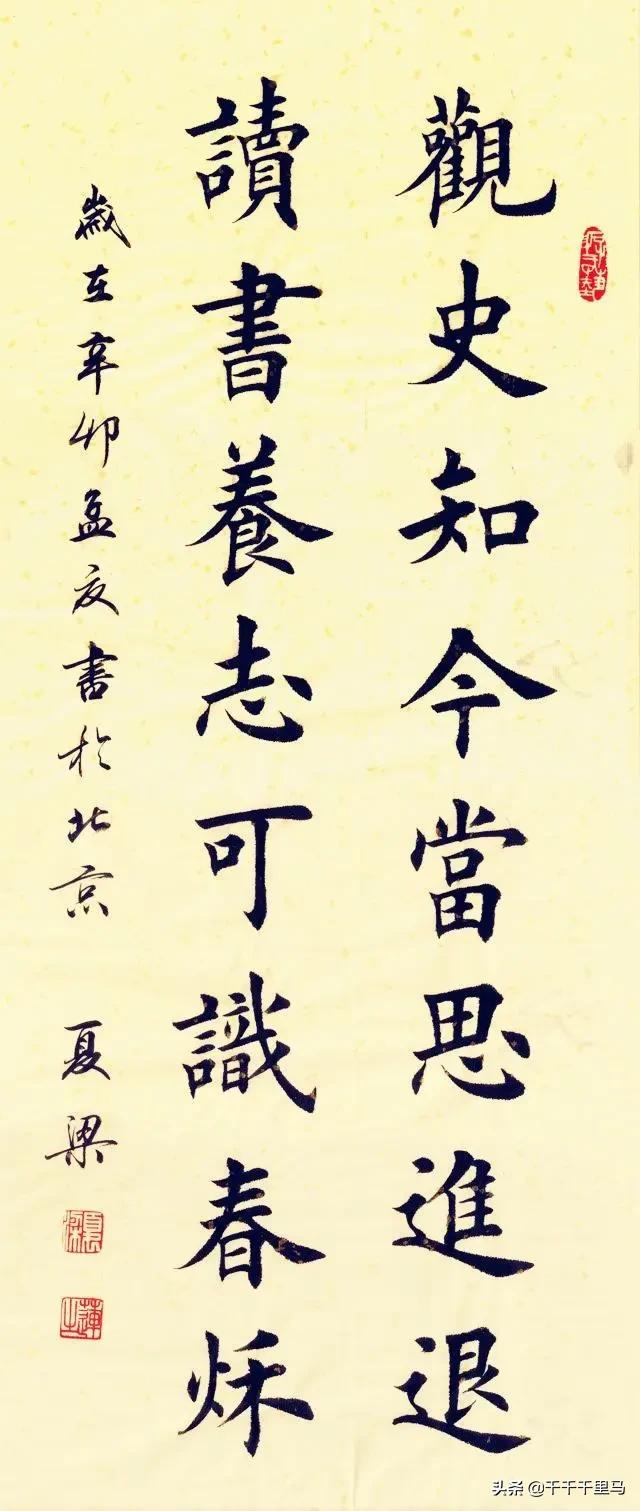 觀史知今當思進退
讀書養志可識春秌
歲在辛卯孟夏書於北京 夏梁
夏梁
头条 @千千千里马